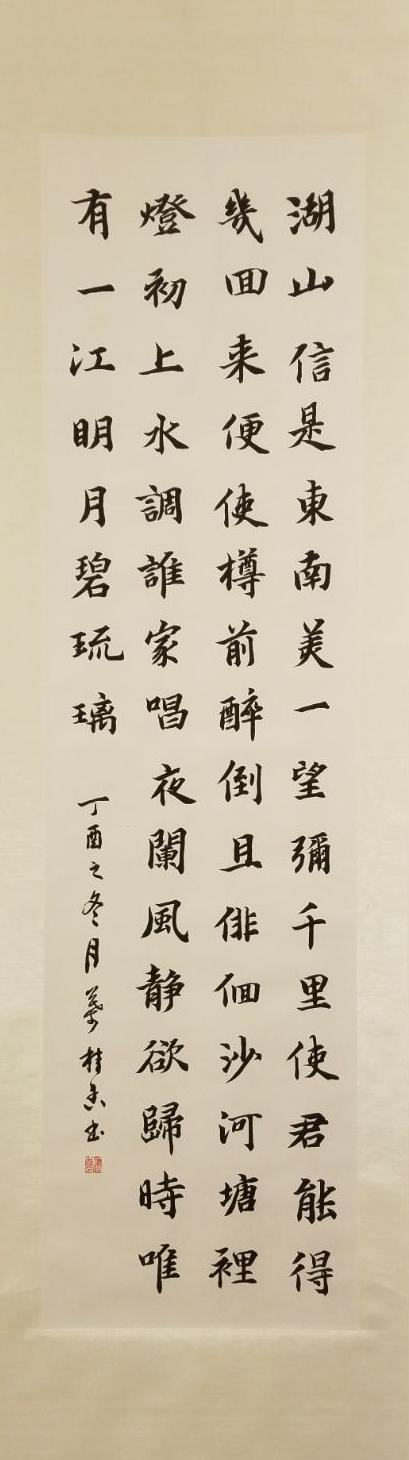 湖山信是東南美一望彌千里使君能得
幾回来便使樽前醉倒且俳佪沙河塘裡
燈初上水調誰家唱夜闌風静欲歸時唯
有一江明月碧琉璃
丁酉之冬月 桂 书